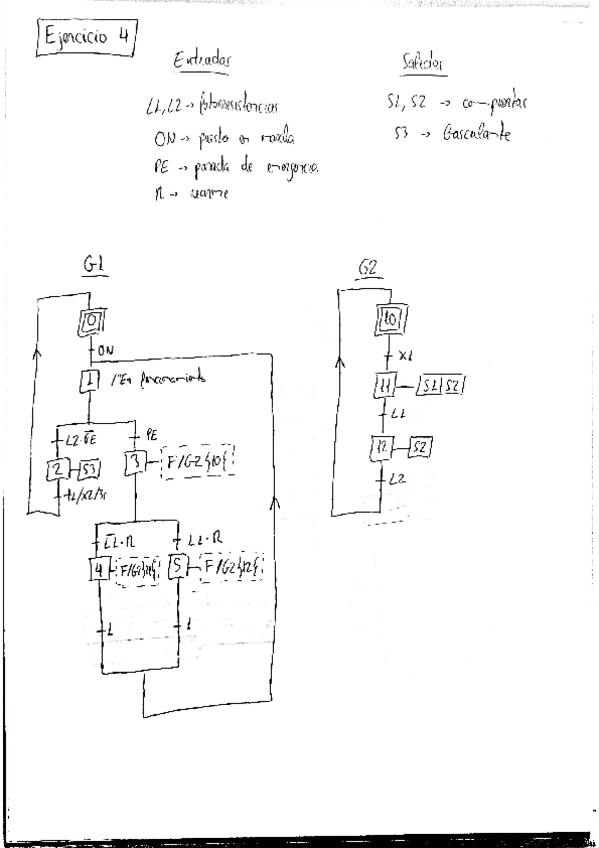 Ejercicio 4
Entradas
L1, L2 → fotorresistencias
ON → puesta en marcha
PE → parada de emergencia
R → rearme
Salidas
S1, S2 → compuertas
S3 → basculante
G1
0
ON
1
"En funcionamiento
L2·P̅E̅
PE
2
S3
3
F/G2{10{
t1/x2/3s
L̅1̅·R
L1·R
4
F/G2}11{
5
F/G2}12{
1
1
G2
10
X1
11
S1
S2
L1
12
S2
L2